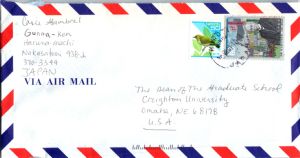 Gunma-Ken
Haruna-machi
370-3344
JAPAN
VIA AIR MAIL
The Dean of The Graduate School
Creighton University
Omaha, NE 68178
U.S.A